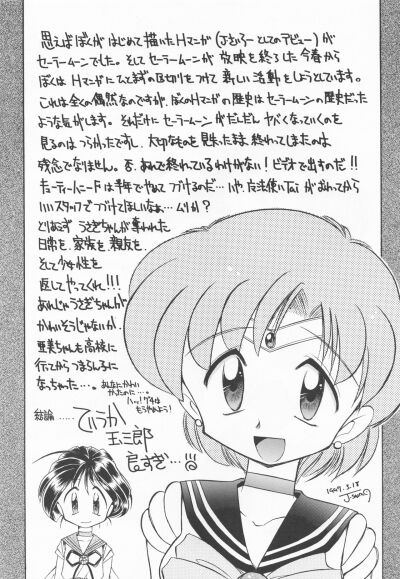 思えばぼくがはじめて描いたHマンガ(Jさいろーとしてのデビュー)が
セーラームーンでした。そしてセーラームーンが放映を終了した今春から
ぼくはHマンガにひとまずの区切りをつけて新しい活動をしようとしています。
これは全くの偶然なのですが、ぼくのHマンガの歴史はセーラームーンの歴史だった
ような気がします。それだけにセーラームーンがだんだんヤバくなっていくのを
見るのはつらかったですし、大切なものを見失ったまま終わってしまったのは
残念でなりません。否、あれで終れているわけがない!ビデオで出すのだ!!
キューティーハニーFは半年でやめてつづけるのだ…いや、魔法使いTaiがおわってから
いいスタッフでつづけてほしいなぁ…ムリか?
とりあえずうさぎちゃんが奪われた
日常を、家族を、親友を、
そして少女性を
返してやってくれ!!!
あれじゃうさぎちゃんが
かわいそうじゃないか。
亜美ちゃんも高校に
行ってからつまらん子に
なっちゃった…。
あんなにかわい
かったのに…。
ハッ!グチは
もうやめよう!
結論……
ていうか
玉三郎
良すぎ…
1997.3.18